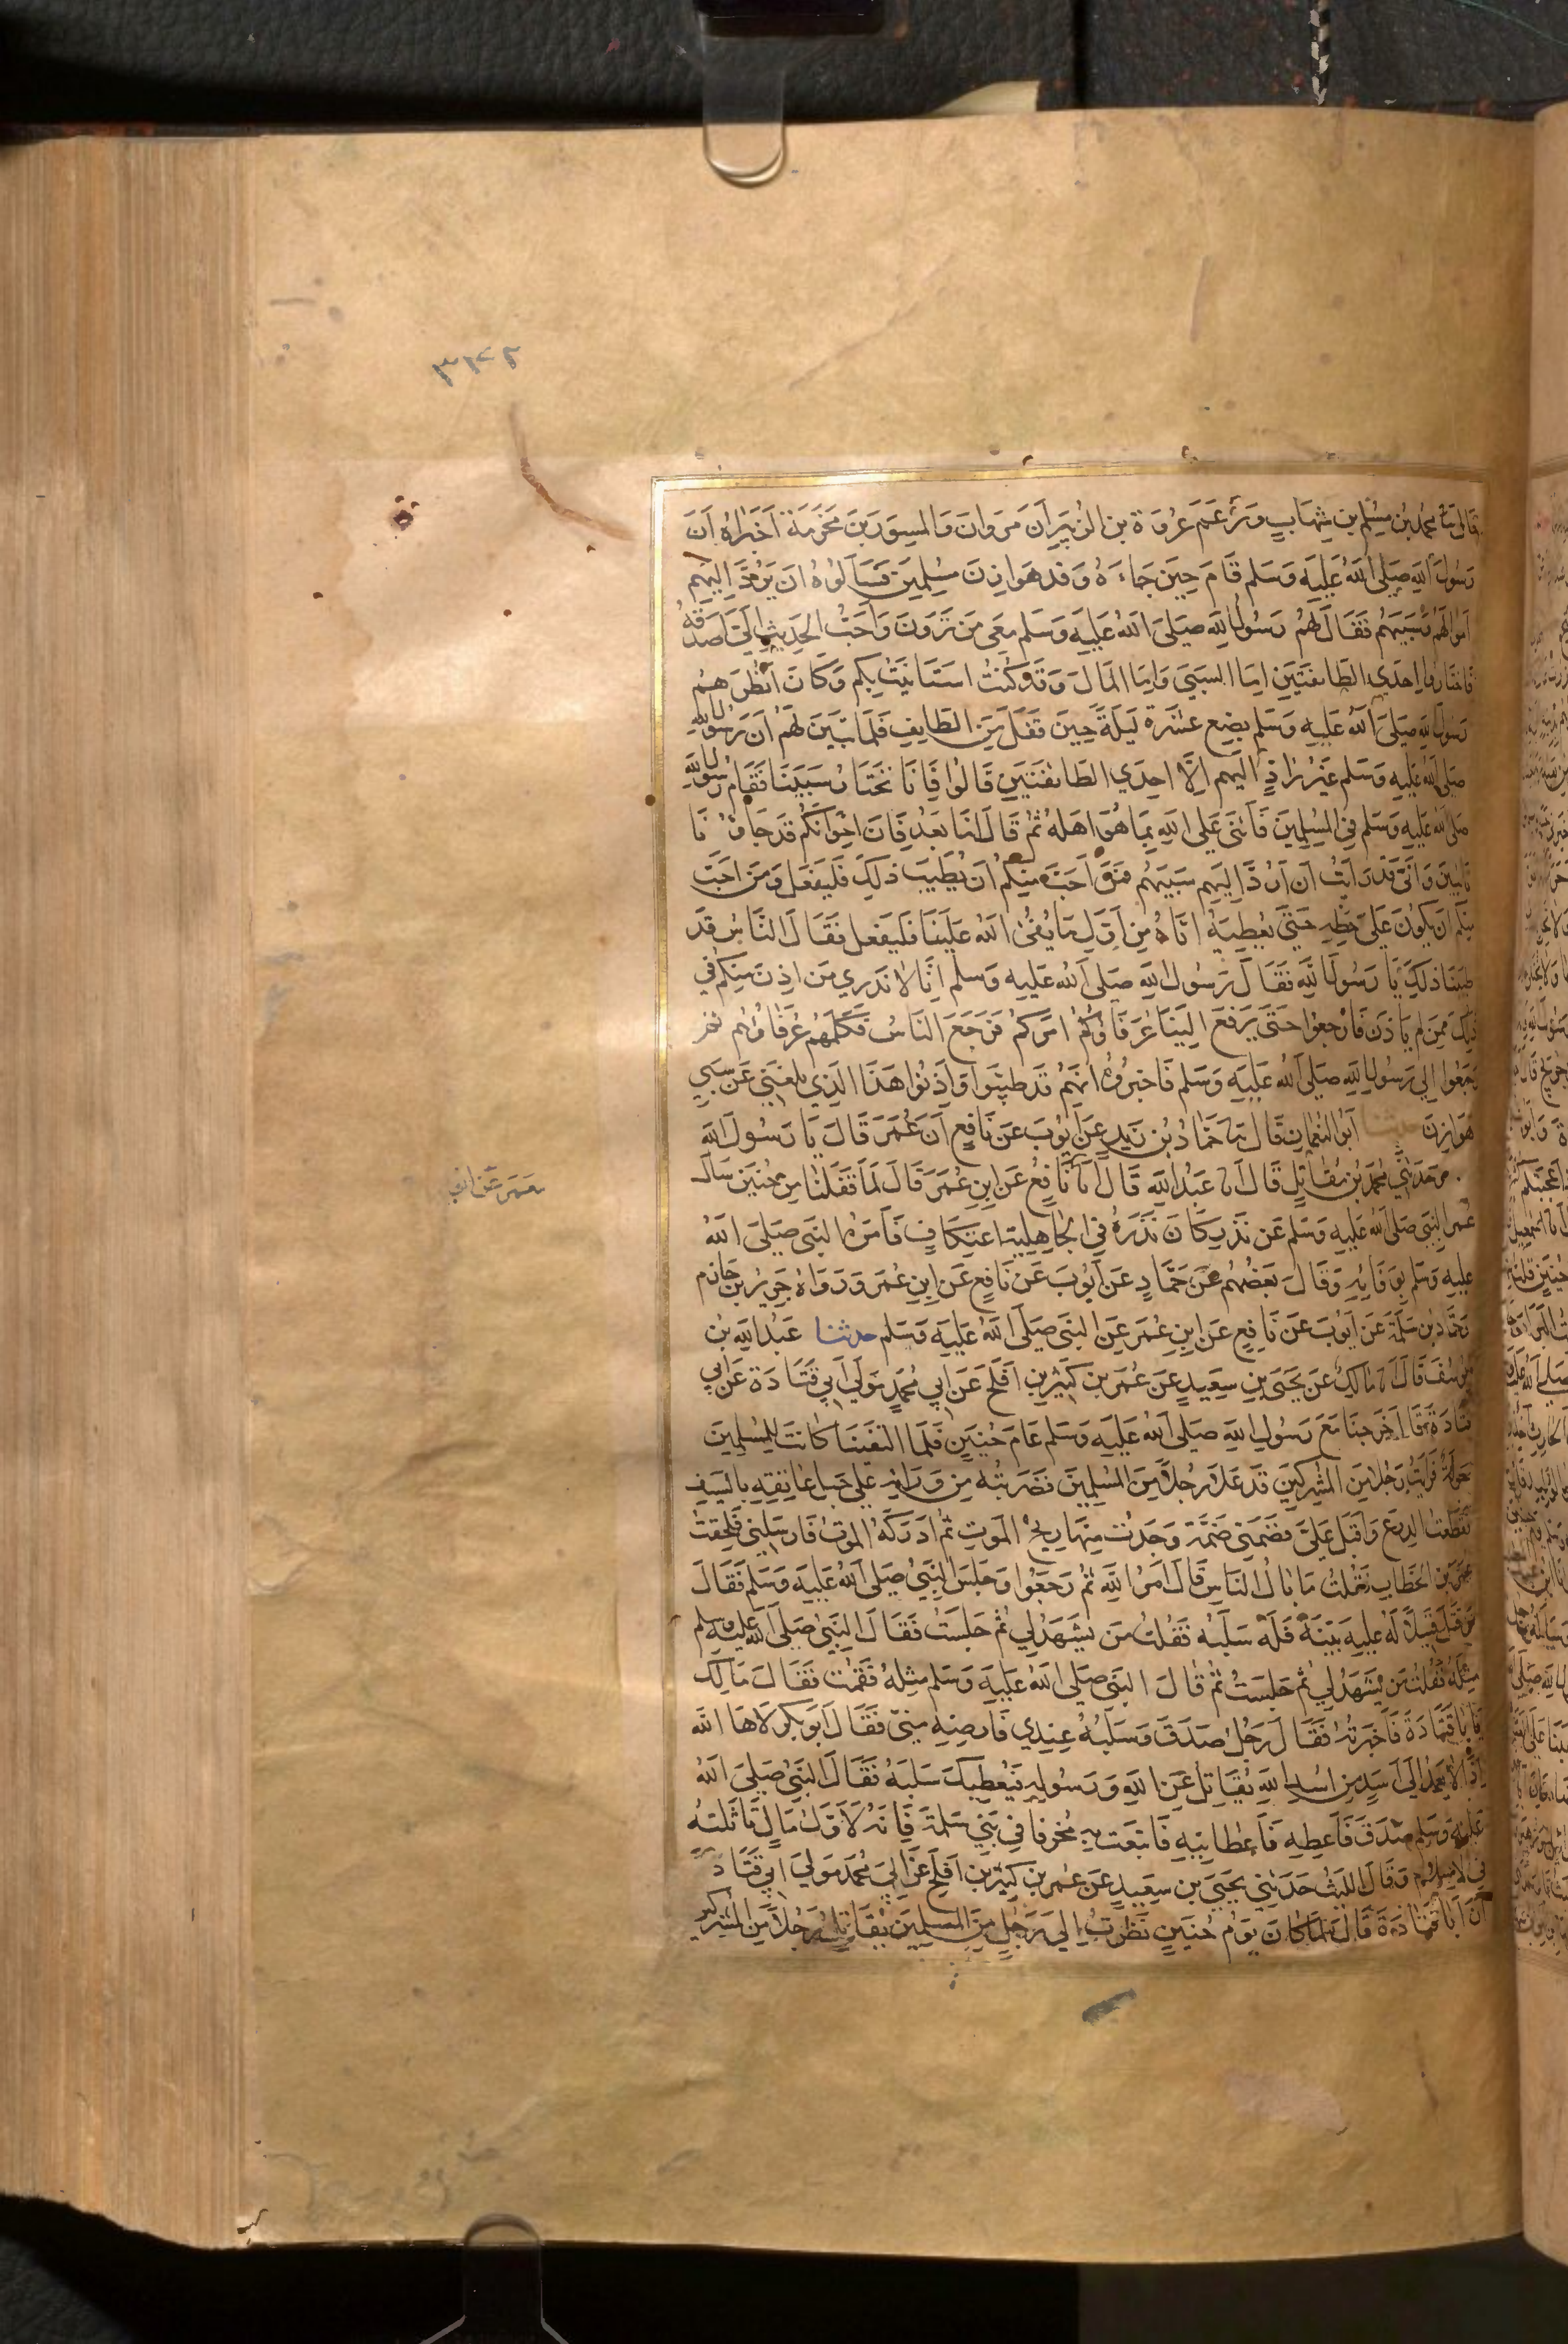 ٣١٢٢
قال ثنا محمد بن مسلم بن شهاب وزعم عروة بن الزبير ان مروان والمسور بن مخرمة اخبراه ان
رسول الله صلى الله عليه وسلم قام حين جاءه وفد هوازن مسلمين فسالوه ان يرد اليهم
اموالهم وسبيهم فقال لهم رسول الله صلى الله عليه وسلم معي من ترون واحب الحديث الي اصدقه
فاختاروا احدي الطائفتين اما السبي واما المال وقد كنت استانيت بكم وكان انظرهم
رسول الله صلى الله عليه وسلم بضع عشرة ليلة حين قفل من الطايف فلما تبين لهم ان رسول الله
صلى الله عليه وسلم غير راد اليهم الا احدي الطائفتين قالوا فانا نختار سبينا فقام رسول الله
صلى الله عليه وسلم في المسلمين فاثنى علي الله بما هو اهله ثم قال اما بعد فان اخوانكم قد جاؤنا
تايبين واني قد رايت ان ارد اليهم سبيهم فمن احب منكم ان يطيب ذلك فليفعل ومن احب
منكم ان يكون على حظه حتى نعطيه اياه من اول ما يفئ الله علينا فليفعل فقال الناس قد
طيبنا ذلك يا رسول الله فقال رسول الله صلى الله عليه وسلم انا لا ندري من اذن منكم في
ذلك ممن لم ياذن فارجعوا حتى يرفع الينا عرفاؤكم امركم فرجع الناس فكلمهم عرفاؤهم ثم
رجعوا الي رسول الله صلى الله عليه وسلم فاخبروه انهم قد طيبوا واذنوا هذا الذي بلغني عن سبي
هوازن حدثنا ابو النعمان قال ثنا حماد بن زيد عن ايوب عن نافع ان عمر قال يا رسول الله
ح وحدثني محمد بن مقاتل قال انا عبد الله قال انا نافع عن ابن عمر قال لما قفلنا من حنين سال
معمر عن ايوب
عمر النبي صلى الله عليه وسلم عن نذر كان نذره في الجاهلية اعتكاف فامره النبي صلى الله
عليه وسلم بوفائه وقال بعضهم عن حماد عن ايوب عن نافع عن ابن عمر ورواه جرير بن حازم
وحماد بن سلمة عن ايوب عن نافع عن ابن عمر عن النبي صلى الله عليه وسلم حدثنا عبد الله بن
يوسف قال انا مالك عن يحيى بن سعيد عن عمر بن كثير بن افلح عن ابي محمد مولي ابي قتادة عن ابي
قتادة قال خرجنا مع رسول الله صلى الله عليه وسلم عام حنين فلما التقينا كانت للمسلمين
جولة فرايت رجلا من المشركين قد علا رجلا من المسلمين فضربته من ورائه علي حبل عاتقه بالسيف
فقطعت الدرع واقبل علي فضمني ضمة وجدت منها ريح الموت ثم ادركه الموت فارسلني فلحقت
عمر بن الخطاب فقلت ما بال الناس قال امر الله ثم رجعوا وجلس النبي صلى الله عليه وسلم فقال
من قتل قتيلا له عليه بينة فله سلبه فقلت من يشهد لي ثم جلست فقال النبي صلى الله عليه وسلم
مثله فقلت من يشهد لي ثم جلست ثم قال النبي صلى الله عليه وسلم مثله فقمت فقال مالك
يا با قتادة فاخبرته فقال رجل صدق وسلبه عندي فارضه مني فقال ابو بكر لاها الله
اذا لا يعمد الى اسد من اسد الله يقاتل عن الله ورسوله فيعطيك سلبه فقال النبي صلى الله
عليه وسلم صدق فاعطه فاعطانيه فابتعت به مخرفا في بني سلمة فانه لاول مال تاثلته
في الاسلام وقال الليث حدثني يحيى بن سعيد عن عمر بن كثير بن افلح عن ابي محمد مولي ابي قتادة
ان ابا قتادة قال لما كان يوم حنين نظرت الي رجل من المسلمين يقاتل رجلا من المشركين